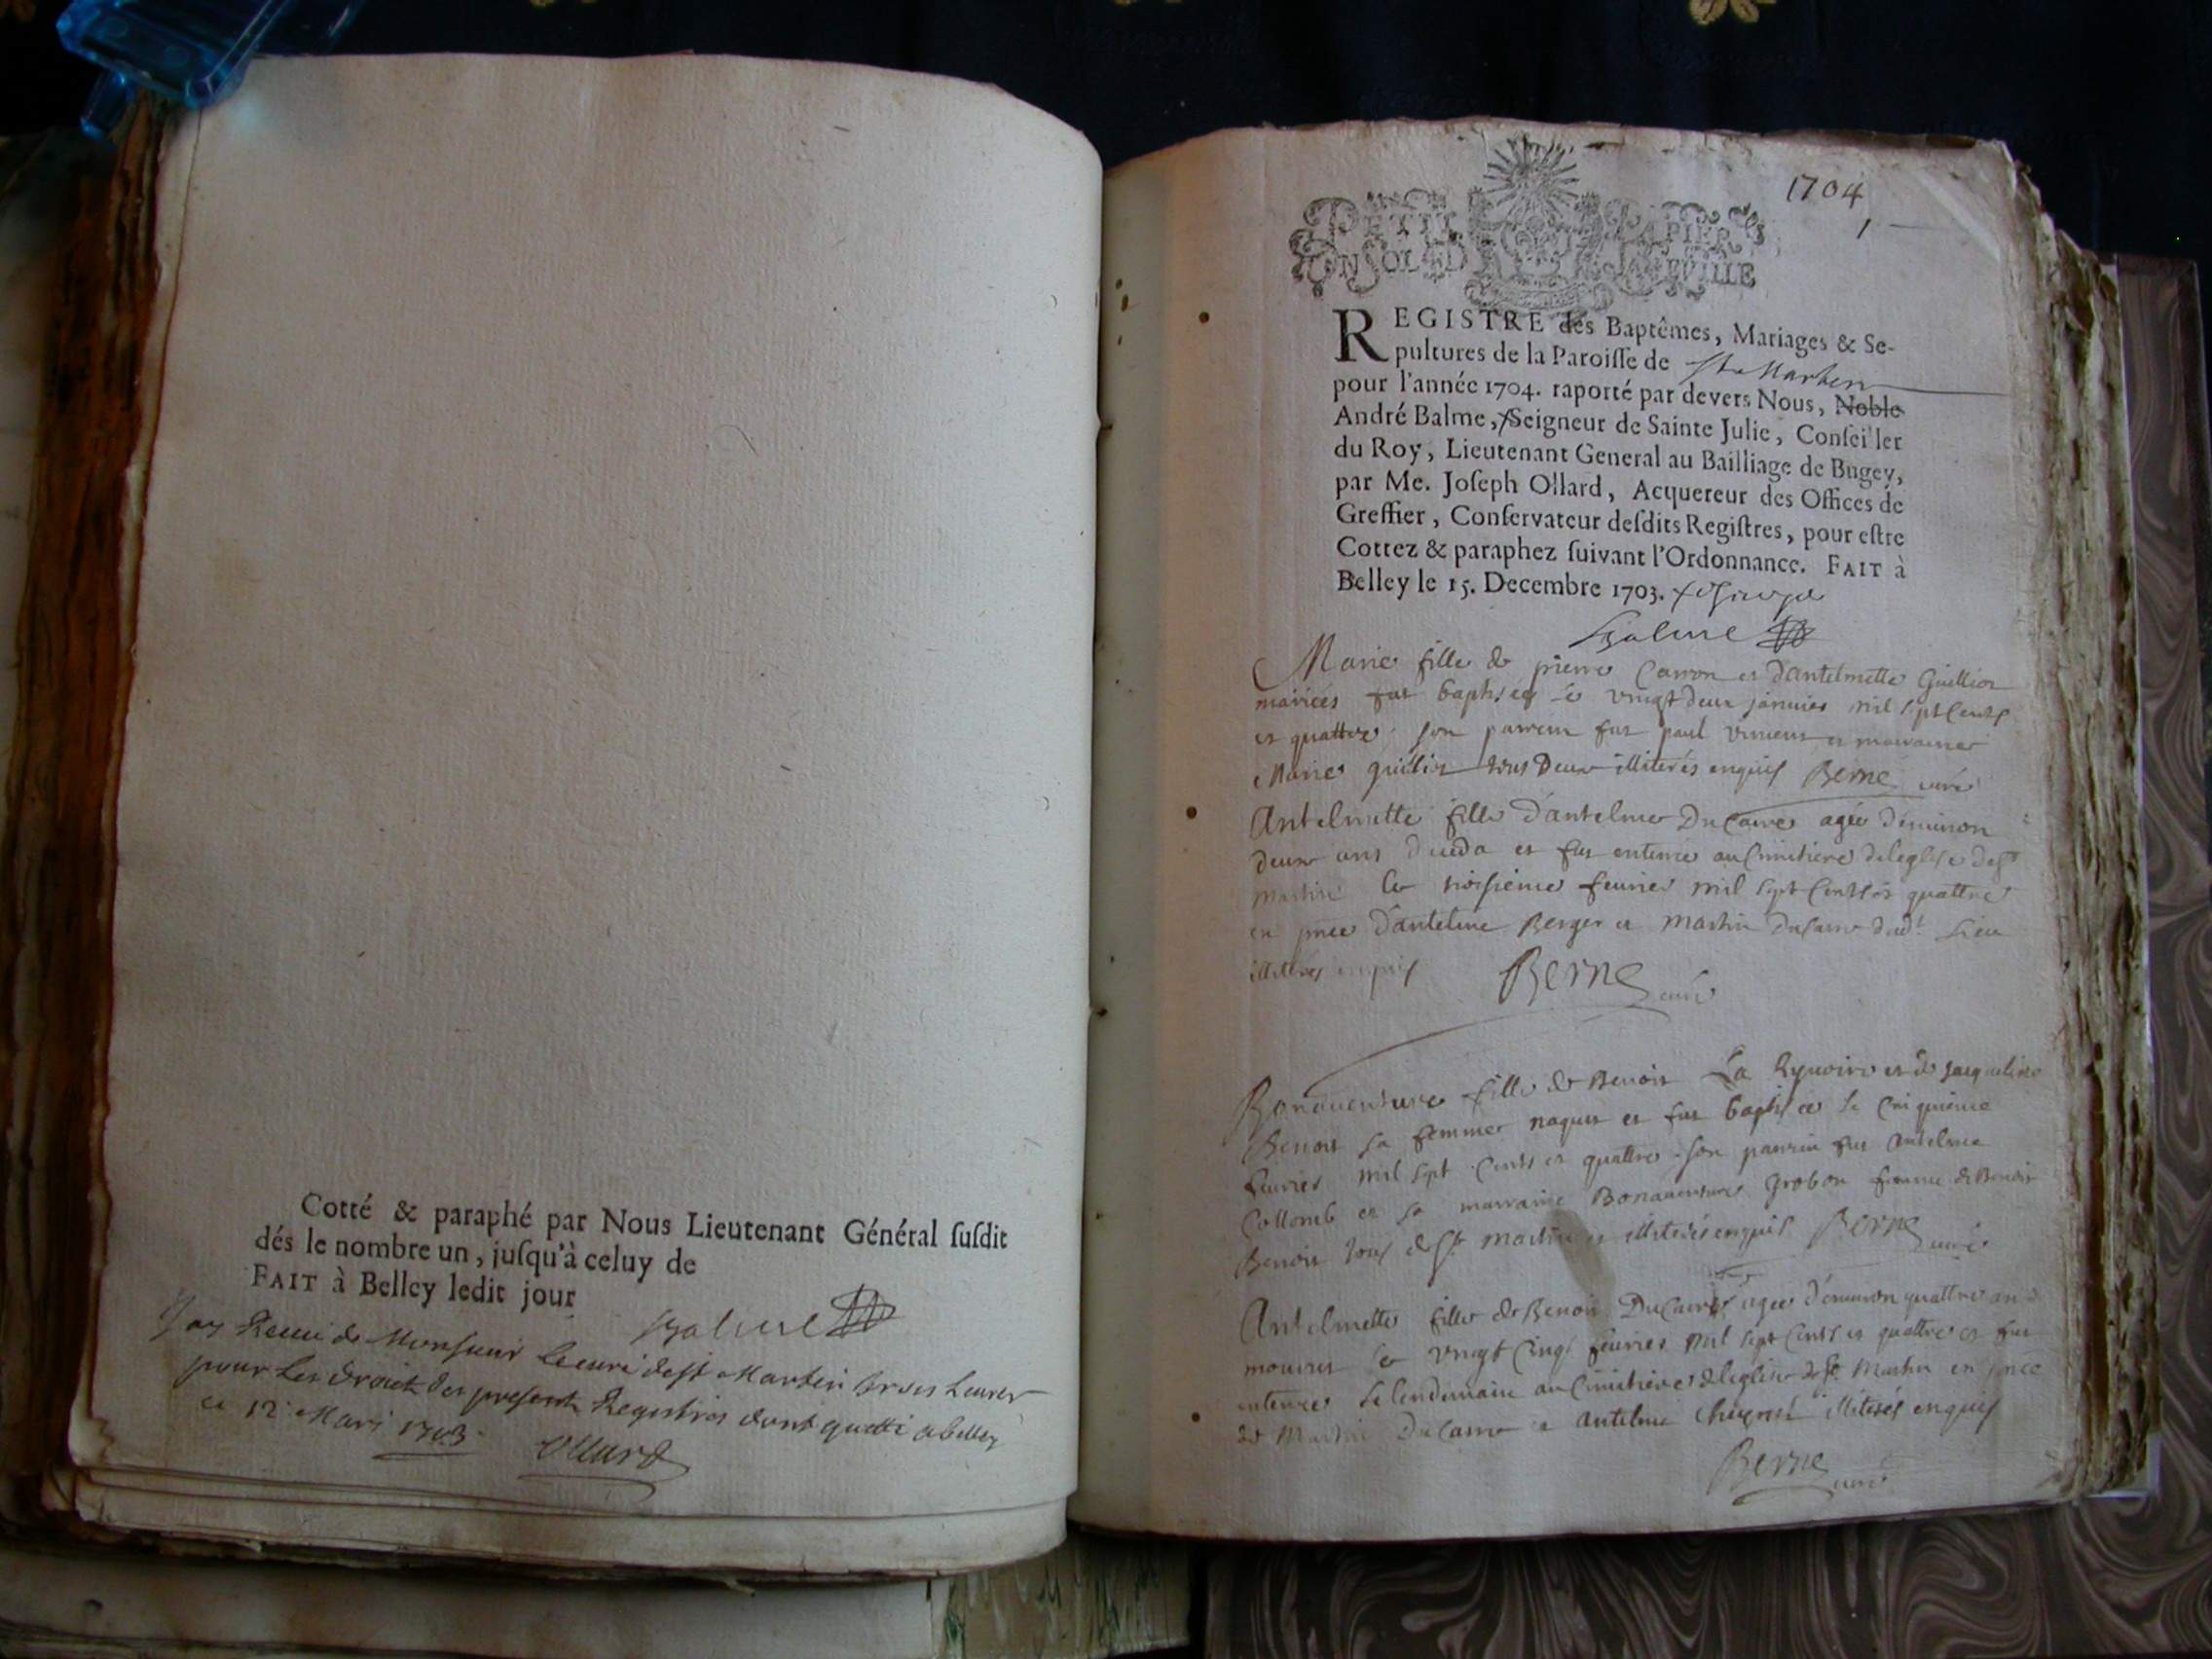 Cotté & paraphé par Nous Lieutenant Général ſuſdit
dés le nombre un, juſqu'à celuy de
FAIT à Belley ledit jour
Balme
Jay Receu de Monsieur le curé de st Martin trois livres
pour les droits des presents Registres dont quitte a belley
ce 12 Mars 1703
Ollard
1704
1
PETIT PAPIER
CONSOLED LA FEVILLE
REGISTRE des Baptêmes, Mariages & Se-
pultures de la Paroiſſe de St Martin
pour l'année 1704. raporté par devers Nous, Noble
André Balme, Seigneur de Sainte Julie, Conſeiller
du Roy, Lieutenant General au Bailliage de Bugey,
par Me. Joſeph Ollard, Acquereur des Offices de
Greffier, Conſervateur deſdits Regiſtres, pour eſtre
Cottez & paraphez ſuivant l'Ordonnance. FAIT à
Belley le 15. Decembre 1703.
Balme
Marie fille de pierre Carron et d'antelmette Guillion
mariées fut baptisée le vingt deux janvier mil sept cents
et quattre son parrein fut paul et marraine
Marie tous deux illiterés enquis Berne curé
Antelmette fille d'antelme DuCarre agée d'environ
deux ans et fut enterrée au Cimitiere de leglise de st
martin le troisieme fevrier mil sept cents et quattre
en pnce d'antelme Berger et martin DuCarre dud.t Lieu
illiterés enquis Berne curé
Bonaventure fille de Benoit La et de jacqueline
Benoit sa femme naquit et fut baptisée le Cinquieme
fevrier mil sept cents et quattre son parrein fut antelme
Collomb et sa marraine Bonaventure Grobon femme de Benoit
Benoit tous de St martin et illiterés enquis Berne curé
Antelmette fille de Benoit DuCarre agée d'environ quattre ans
mourut le vingt cinq fevrier mil sept cents et quattre et fut
enterrée le lendemain au Cimitiere de leglise de st Martin en pnce
de Martin DuCarre et antelme illiterés enquis
Berne curé